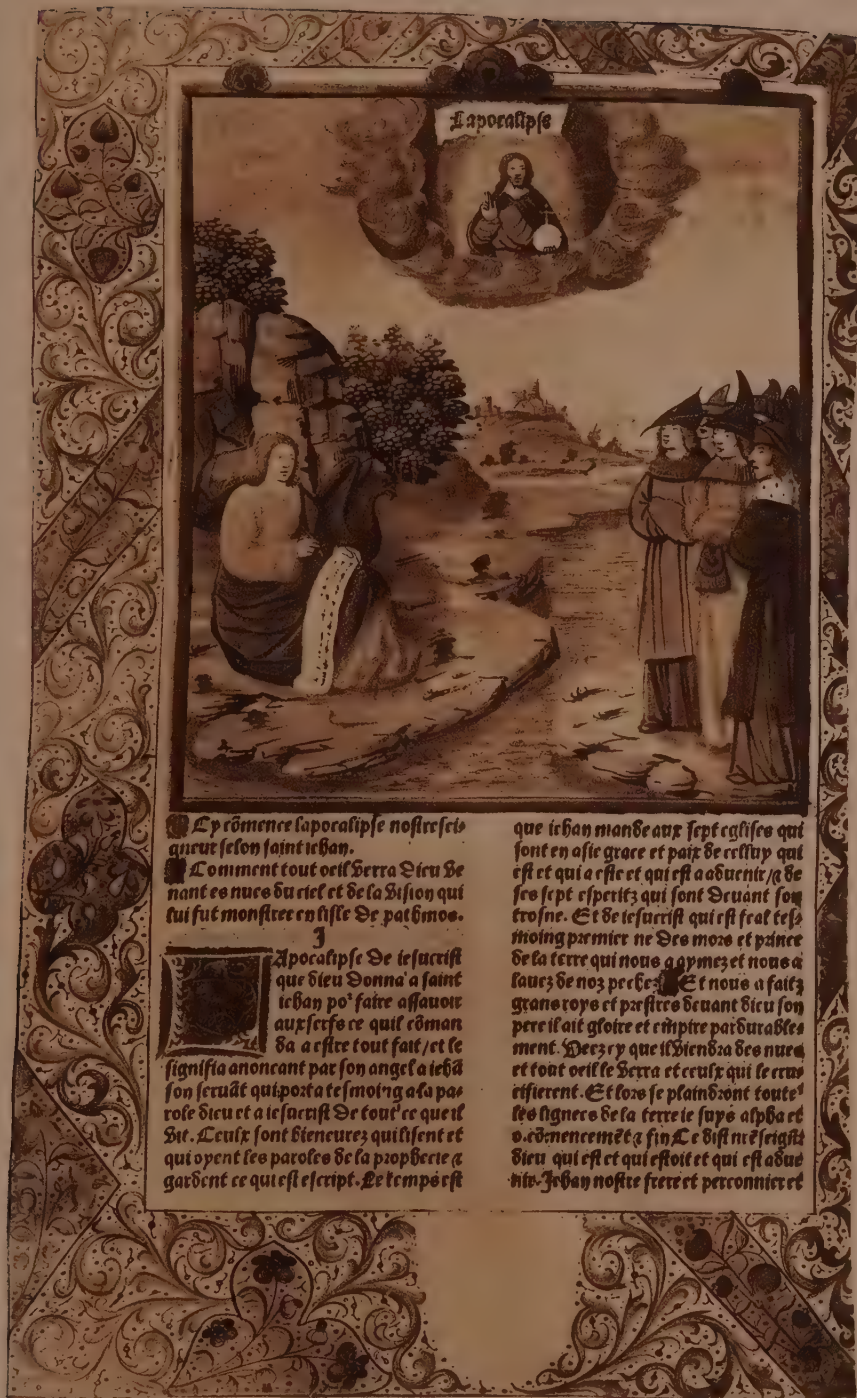 Lapocalipse
Cy cõmence lapocalipse nostre sei-
gneur selon saint iehan.
Comment tout oeil verra Dieu ve
nant es nues du ciel et de la vision qui
lui fut monstree en lisle De pathmos.
I
Apocalipse De iesucrist
que dieu Donna a saint
iehan po' faire assauoir
aux serfs ce quil cõman
da a estre tout fait / et le
signifia anoncant par son angel a iehã
son seruãt qui porta tesmoing a la pa-
role dieu et a iesucrist De tout ce que il
vit. Ceulx sont bieneurez qui lisent et
qui oyent les paroles de la prophecie ⁊
gardent ce qui est escript. Le temps est
que iehan mande aux sept eglises qui
sont en asie grace et paix de celluy qui
est et qui a este et qui est a aduenir / ⁊ de
ses sept esperitz qui sont Deuant son
trosne. Et de iesucrist qui est feal tes-
moing premier ne Des mors et prince
de la terre qui nous a aymez et nous a
lauez de noz pechez Et nous a faitz
grans roys et prestres deuant dieu son
pere il ait gloire et empire pardurable-
ment. Veez cy que il viendra des nues
et tout oeil le verra et ceulx qui le cruc
ifierent. Et lors se plaindront toute'
les lignees de la terre ie suys alpha et
o. cõmencemẽt ⁊ fin Ce dist nrẽ seigñr
dieu qui est et qui estoit et qui est adue
nir. Jehan nostre frere et perconnier et